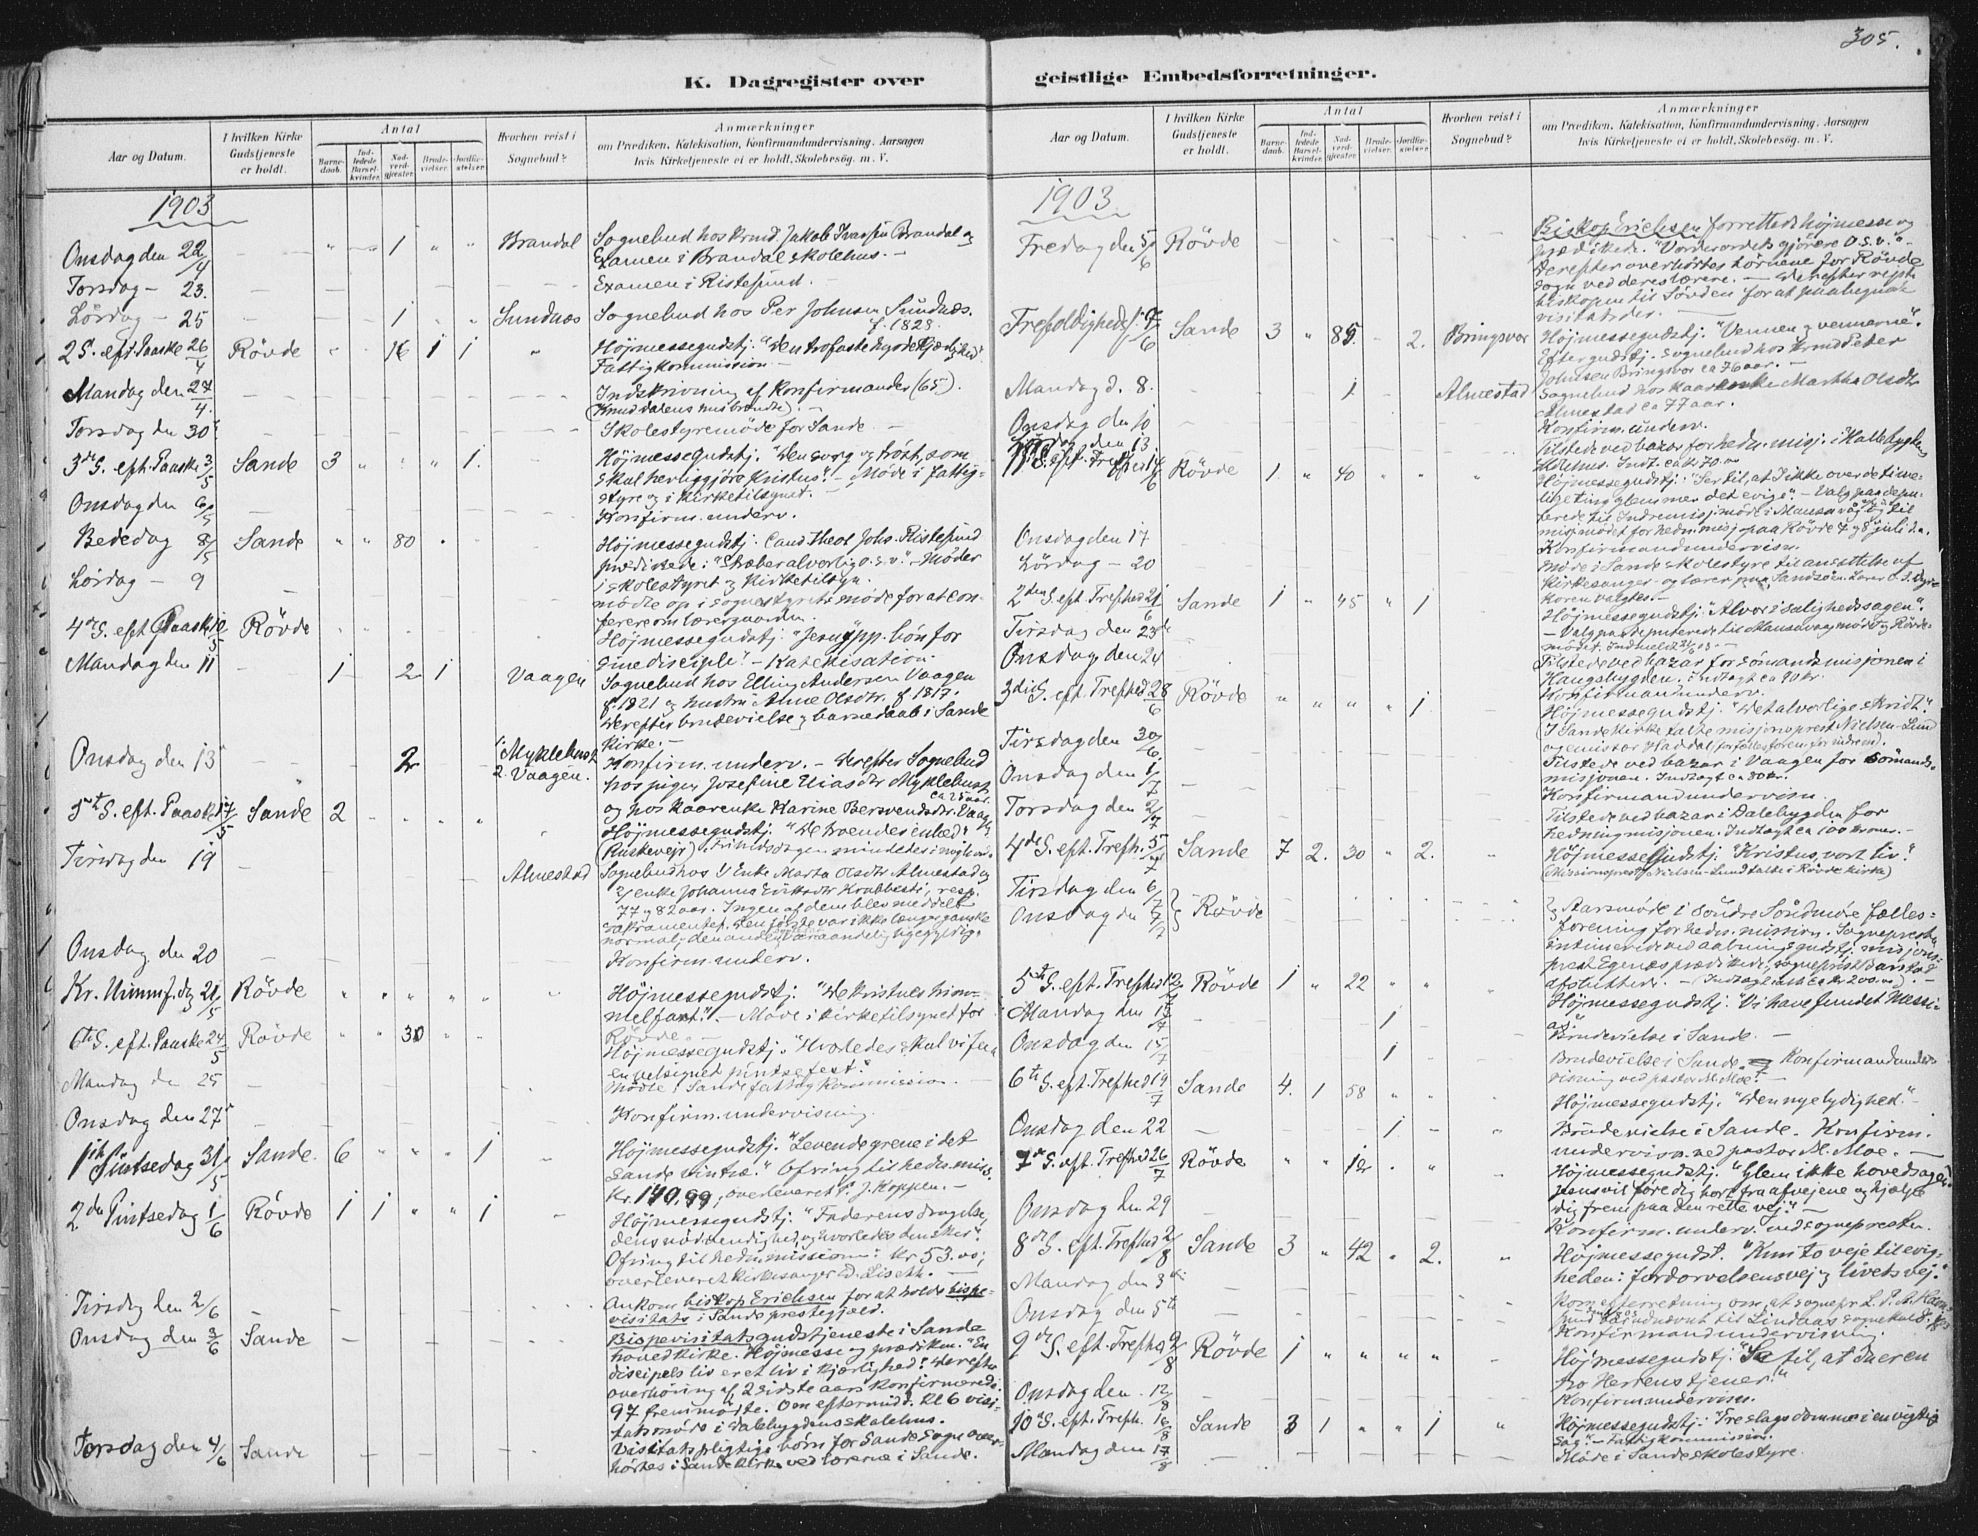 305.
K. Dagregister over
Aar og Datum.
I hvilken Kirke Gudstjeneste er holdt.
Antal
Barne-daab.
Ind-ledede Barsel-kvinder.
Nad-verd-gjæster.
Brude-vielser.
Jordfæ-stelser.
Hvorhen reist i Sognebud?
Anmærkninger
om Prædiken, Katekisation, Konfirmandundervisning, Aarsagen
hvis Kirketjeneste ei er holdt, Skolebesøg. m. V.
1903
Onsdag den 22/4 — 1 Brandal Sognebud hos Krmd. Jakob Ivarsen Brandal og
Examen i Brandal skolehus. —
Torsdag — 23. Examen i Ristesund.
Lördag — 25 1 Sundnæs Sognebud hos Per Johnsen Sundnæs.
f. 1828.
2 S. eft. Paaske 26/4 Rövde 16 1 1 Højmessegudstj. "Den trofaste hyrdekjærlighed"
Fattigkommission —
Mandag den 27/4. Indskrivning af Konfirmander (65).
(Knud dalens hus brændte). —
Torsdag den 30 Skolestyremöde for Sande. —
3die S. eft. Paaske 3/5 Sande 3 1. Højmessegudstj. "Den sorg og tröst, som
skal herliggjöre Kristus". — Möde i fattig-
styre og i Kirketilsynet. —
Onsdag den 6/5 Konfirm. underv.
Bededag 8/5 Sande 80 Højmessegudstj. Cand. theol Johs. Ristesund
prædikede: "Stræber alvorlig o.s.v." — Möder
i skolestyret og Kirketilsyn.
Lördag — 9 mödte op i sognestyrets möde for at con-
ferere om lærergaarden.
4de S. eft. Paaske 10/5 Rövde Højmessegudstj. "Jesu ypp. bön for
sine disciple". — Katekisation
Mandag den 11 1 2 1 Vaagen Sognebud hos Elling Andersen Vaagen
f. 1821 og hustru Ane Olsdtr. f. 1817.
Derefter brudevielse og barnedaab i Sande
Kirke. —
Onsdag den 13 2 1. Myklebust
2. Vaagen. Konfirm. underv. — Derefter Sognebud
hos pigen Josefine Eliasdtr Myklebust
ca 25 aar.
og hos kaarenke Karine Bersvendsdtr. Vaagen
5te S. eft. Paaske 17/5 Sande 2 Højmessegudstj.
(Ruskeveir). Frihedsdagen mindedes
Tirsdag den 19 Almestad Sognebud hos 1/ Enke Marta Olsdtr Almestad og
2/ enke Johanna Krabbesti, resp.
77 og 82 aar. Ingen af dem blev meddelt
sakramentet. Den förste var ikke længer ganske
normal, den anden var aandelig ligegyldig.
Onsdag den 20 Konfirm. underv.
Kr. Himmf.dag 21/5 Rövde Højmessegudstj. "De kristnes him-
melfart". — Möde i kirketilsynet for
Rövde. —
6te S. eft. Paaske 24/5 Rövde 30 Højmessegudstj. "Hvorledes skal vi faa
en velsignet pintsefest".
Mandag den 25 Mödte i Sande fattigkommission. —
Onsdag den 27 Konfirm. undervisning.
1ste Pintsedag 31/5 Sande. 6 1 Højmessegudstj. "Levende grene i det
sande vintræ." Ofring til hedn. miss.
Kr. 140,99; overleveret P. J. Koppen. —
2den Pintsedag 1/6 Rövde 1 1 1 Højmessegudstj. "Faderens dragelse,
dens nödvendighed, og hvorledes den sker".
Ofring til hedn. mission: kr 53.00;
overleveret kirkesanger D. Liseth. —
Tirsdag den 2/6 Ankom biskop Erichsen for at holde bispe-
visitats i Sande prestegjæld.
Onsdag den 3/6 Sande Bispevisitatsgudstjeneste i Sande
hovedkirke. Højmesse og prædiken. "En
discipels liv er et liv i kjærlighed". Derefter
overhöring af 2 sidste aars konfirmerede.
97 fremmödte. Om eftermidd. Kl 6 visi-
tatsmöde i Dalebygdens skolehus.
Torsdag den 4/6 Sande Visitatspligtige börn for Sande sogn over-
hörtes i Sande kirke ved lærerne i Sande.
geistlige Embedsforretninger.
Aar og Datum.
I hvilken Kirke Gudstjeneste er holdt.
Antal
Barne-daab.
Ind-ledede Barsel-kvinder.
Nad-verd-gjæster.
Brude-vielser.
Jordfæ-stelser.
Hvorhen reist i Sognebud?
Anmærkninger
om Prædiken, Katekisation, Konfirmandundervisning, Aarsagen
hvis Kirketjeneste ei er holdt, Skolebesøg. m. V.
1903.
Fredag den 5/6 Rövde Biskop Erichsen forrettede höjmesse og
prædikede. "Vorder ordets gjörere o.s.v." —
Derefter overhörtes börnene for Rövde
sogn ved deres lærere. — Derefter rejste
biskopen til Sövden for at paabegynde
visitats der. —
Trefoldigheds S. 7/6 Sande 3 85 2. Bringsvor Højmessegudstj. "Vennen og vennerne".
Efter gudstj. sognebud hos krmd Peder
Johnsen Bringsvor ca 76 aar. —
Mandag d. 8. 1 Almestad Sognebud hos kaarenke Martha Olsdtr
Almestad ca 77 aar.
Onsdag den 10 Konfirm. underv.
Lördag den 13 Tilstede ved bazar for hedn. misj. i Hallebygdens
skolehus. Indt. ca kr 70.00
1ste S. eft. Trefhed 14/6 Rövde 1 40 Højmessegudstj. "Ser til, at I ikke over de time-
lige ting glemmer det evige". — Valg paa depu-
terede til Indremisj.möde i Mausavåg og til
misj.mödet for hedn. misj. paa Rövde 7 og 8 juli d.a.
Onsdag den 17 Konfirmandundervisn.
Lördag — 20 Möde i Sande skolestyre til ansættelse af
kirkesanger og lærer paa Sandsöen.
koren valgtes. —
2den S. eft. Trefhed 21/6 Sande 1 45 1 Højmessegudstj. "Alvor i salighedssagen".
— Valg paa deputerede til Mausavaagmödet og Rövde-
mödet.
Tirsdag den 23de Tilstede ved bazar for sömandsmisjonen i
Haugsbygden. Indtægt ca 90 kr.
Onsdag den 24 Konfirmandunderv.
3die S. eft. Trefhed 28/6 Rövde 1 Højmessegudstj. "Det alvorlige skridt".
(I Sande kirke talte misjonsprest Nielsen-Lund
og emissær Haddal
Tirsdag den 30/6 Tilstede ved bazar i Vaagen for sömands-
misjonen. Indtægt ca 80 kr.
Onsdag den 1/7 Konfirmandundervisn.
Torsdag den 2/7 Tilstede ved bazar i Dalebygden for
hedningmisjonen. Indtægt ca 100 kroner. —
4de S. eft. Trefh. 5/7 Sande 7 2. 30 2. Højmessegudstj. "Kristus, vort liv".
(Missionsprest Nielsen-Lund talte i Rövde kirke)
Tirsdag den 6/7
Onsdag den 7/7 } Rövde } Aarsmöde i Söndre Söndmöre fælles-
forening for hedn. mission. Sogneprest
intimerede ved aabningsgudstj., misjons-
prest Egenæs prædikede, sogneprest Barstad
afsluttede. — (Indtægt kr 200.00). —
5te S. eft. Trefhed 12/7 Rövde 1 22 Højmessegudstj. "Vi have fundet Messi-
as".
Mandag den 13/7 1 Brudevielse i Sande. —
Onsdag den 15/7 1 Brudevielse i Sande. — Konfirmandunder-
visning ved pastor M. Moe. —
6te S. eft. Trefhed 19/7 Sande 4. 1 58 Højmessegudstj. "Den nye lydighed." —
Onsdag den 22 1 Brudevielse i Sande. Konfirm.
undervisn. ved pastor M. Moe. —
7de S. eft. Trefhed 26/7 Rövde 12 Højmessegudstj. "Glem ikke hovedsagen.
Jesus vil före dig bort fra afvejene og hjælpe
dig frem paa den rette vej." —
Onsdag den 29 Konfirm. underv. ved sognepresten.
8de S. eft. Trefhed 2/8 Sande 3 42 2. Højmessegudst. "Kun to veje til evig-
heden: fordærvelsens vej og livets vej."
Mandag den 3die Kom efterretning om, at sognepr L. P. A.
udnævnt til Lindaas sognekald.
Onsdag den 5te Konfirmandundervisning.
9de S. eft. Trefhed 9/8 Rövde 1 Højmessegudstj. "Se til, at du er en
tro Herrens tjener."
Onsdag den 12/8 Konfirmandundervisn.
10de S. eft. Trefh. 16/8 Sande 3 1 1 Højmessegudstj: "Tre slags domme i en vigtig
sag". — Fattigkommission.
Mandag den 17/8 Möde i Sande skolestyre.